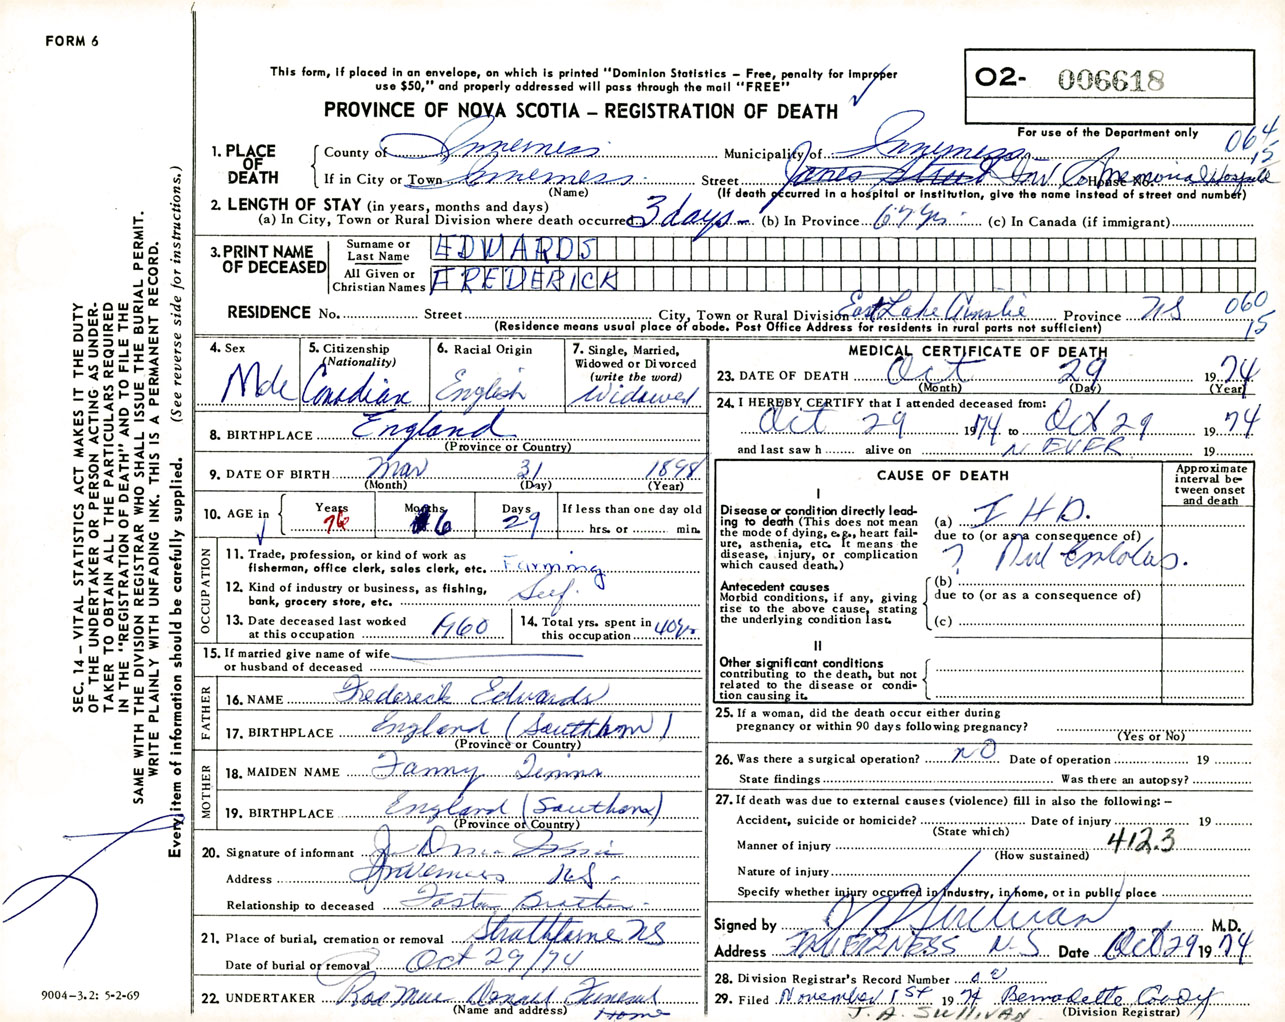 FORM 6
This form, if placed in an envelope, on which is printed "Dominion Statistics – Free, penalty for Improper
use $50," and properly addressed will pass through the mail "FREE"
PROVINCE OF NOVA SCOTIA – REGISTRATION OF DEATH
02- 006618
For use of the Department only
064
12
1. PLACE OF DEATH
County of Inverness Municipality of Inverness
If in City or Town Inverness Street James Street Inv Co Memorial Hospital House No.
(Name) (If death occurred in a hospital or institution, give the name instead of street and number)
2. LENGTH OF STAY (in years, months and days)
(a) In City, Town or Rural Division where death occurred 3 days (b) In Province 67 yrs (c) In Canada (if immigrant)
3. PRINT NAME OF DECEASED
Surname or Last Name EDWARDS
All Given or Christian Names FREDERICK
RESIDENCE No. Street City, Town or Rural Division East Lake Ainslie Province NS 060
15
(Residence means usual place of abode. Post Office Address for residents in rural parts not sufficient)
4. Sex Male
5. Citizenship (Nationality) Canadian
6. Racial Origin English
7. Single, Married, Widowed or Divorced (write the word) Widowed
8. BIRTHPLACE England
(Province or Country)
9. DATE OF BIRTH Mar 31 1898
(Month) (Day) (Year)
10. AGE in Years 76 Months 6 Days 29 If less than one day old
hrs. or min.
OCCUPATION
11. Trade, profession, or kind of work as
fisherman, office clerk, sales clerk, etc. Farming
12. Kind of industry or business, as fishing,
bank, grocery store, etc. Self.
13. Date deceased last worked
at this occupation 1960
14. Total yrs. spent in
this occupation 40 yrs
15. If married give name of wife
or husband of deceased
FATHER
16. NAME Frederick Edwards
17. BIRTHPLACE England (Southern)
(Province or Country)
MOTHER
18. MAIDEN NAME Fanny
19. BIRTHPLACE England (Southern)
(Province or Country)
20. Signature of informant
Address Inverness NS
Relationship to deceased Foster Brother
21. Place of burial, cremation or removal Strathlorne NS
Date of burial or removal Oct 29/74
22. UNDERTAKER Donald Funeral
(Name and address) Home
MEDICAL CERTIFICATE OF DEATH
23. DATE OF DEATH Oct 29 1974
(Month) (Day) (Year)
24. I HEREBY CERTIFY that I attended deceased from:
Oct 29 1974 to Oct 29 1974
and last saw h alive on NEVER 19
CAUSE OF DEATH
Approximate interval between onset and death
I
Disease or condition directly lead-
ing to death (This does not mean
the mode of dying, e.g., heart fail-
ure, asthenia, etc. It means the
disease, injury, or complication
which caused death.)
(a) I H D.
due to (or as a consequence of)
? Embolus.
Antecedent causes
Morbid conditions, if any, giving
rise to the above cause, stating
the underlying condition last.
(b)
due to (or as a consequence of)
(c)
II
Other significant conditions
contributing to the death, but not
related to the disease or condi-
tion causing it.
25. If a woman, did the death occur either during
pregnancy or within 90 days following pregnancy?
(Yes or No)
26. Was there a surgical operation? NO Date of operation 19
State findings Was there an autopsy?
27. If death was due to external causes (violence) fill in also the following: –
Accident, suicide or homicide? Date of injury 19
(State which)
Manner of injury 412.3
(How sustained)
Nature of injury
Specify whether injury occurred in industry, in home, or in public place
Signed by J A Sullivan M.D.
Address INVERNESS N.S Date Oct 29 1974
28. Division Registrar's Record Number
29. Filed November 1st 1974 Bernadette Coady
J. A. SULLIVAN (Division Registrar)
SEC. 14 – VITAL STATISTICS ACT MAKES IT THE DUTY
OF THE UNDERTAKER OR PERSON ACTING AS UNDER-
TAKER TO OBTAIN ALL THE PARTICULARS REQUIRED
IN THE "REGISTRATION OF DEATH" AND TO FILE THE
SAME WITH THE DIVISION REGISTRAR WHO SHALL ISSUE THE BURIAL PERMIT.
WRITE PLAINLY WITH UNFADING INK. THIS IS A PERMANENT RECORD.
Every item of information should be carefully supplied. (See reverse side for instructions.)
9004-3.2: 5-2-69